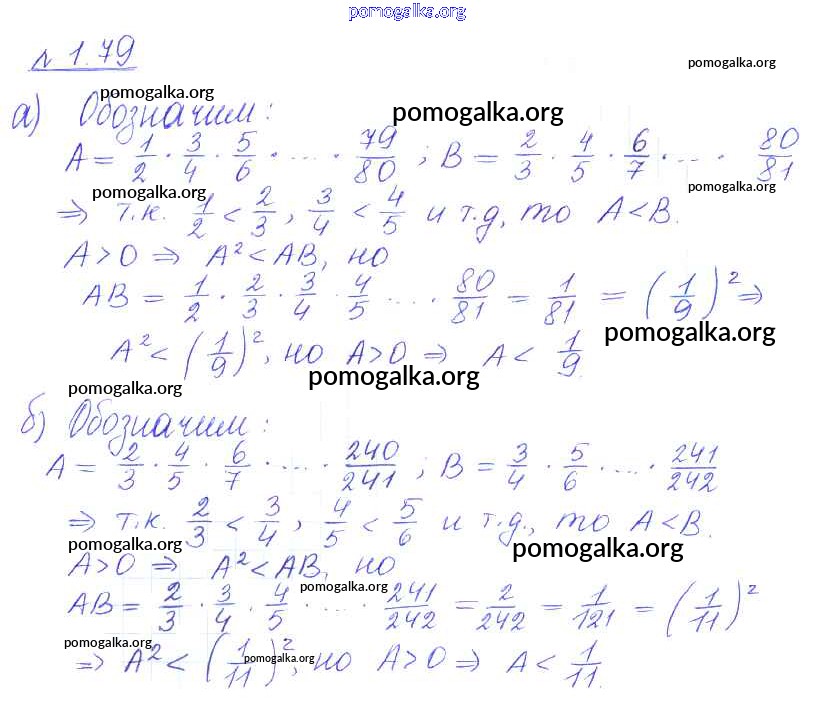 pomogalka.org
№ 1.79
pomogalka.org
pomogalka.org
а) Обозначим:
pomogalka.org
A = 1/2 · 3/4 · 5/6 · ... · 79/80 ; B = 2/3 · 4/5 · 6/7 · ... · 80/81
pomogalka.org
pomogalka.org
⇒ т.к. 1/2 < 2/3, 3/4 < 4/5 и т.д, то A < B.
A > 0 ⇒ A² < AB, но
AB = 1/2 · 2/3 · 3/4 · 4/5 ... · 80/81 = 1/81 = (1/9)² ⇒
pomogalka.org
A² < (1/9)², но A > 0 ⇒ A < 1/9.
pomogalka.org
pomogalka.org
б) Обозначим:
A = 2/3 · 4/5 · 6/7 · ... · 240/241 ; B = 3/4 · 5/6 · ... · 241/242
⇒ т.к. 2/3 < 3/4, 4/5 < 5/6 и т.д., то A < B.
pomogalka.org
pomogalka.org
A > 0 ⇒ A² < AB, но
pomogalka.org
AB = 2/3 · 3/4 · 4/5 · ... · 241/242 = 2/242 = 1/121 = (1/11)²
pomogalka.org
⇒ A² < (1/11)², но A > 0 ⇒ A < 1/11.
pomogalka.org